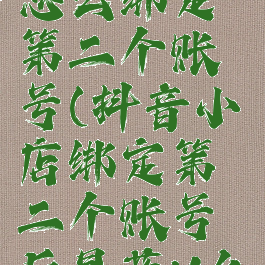 怎么绑定
第二个账
号(抖音小
店绑定第
二个账号